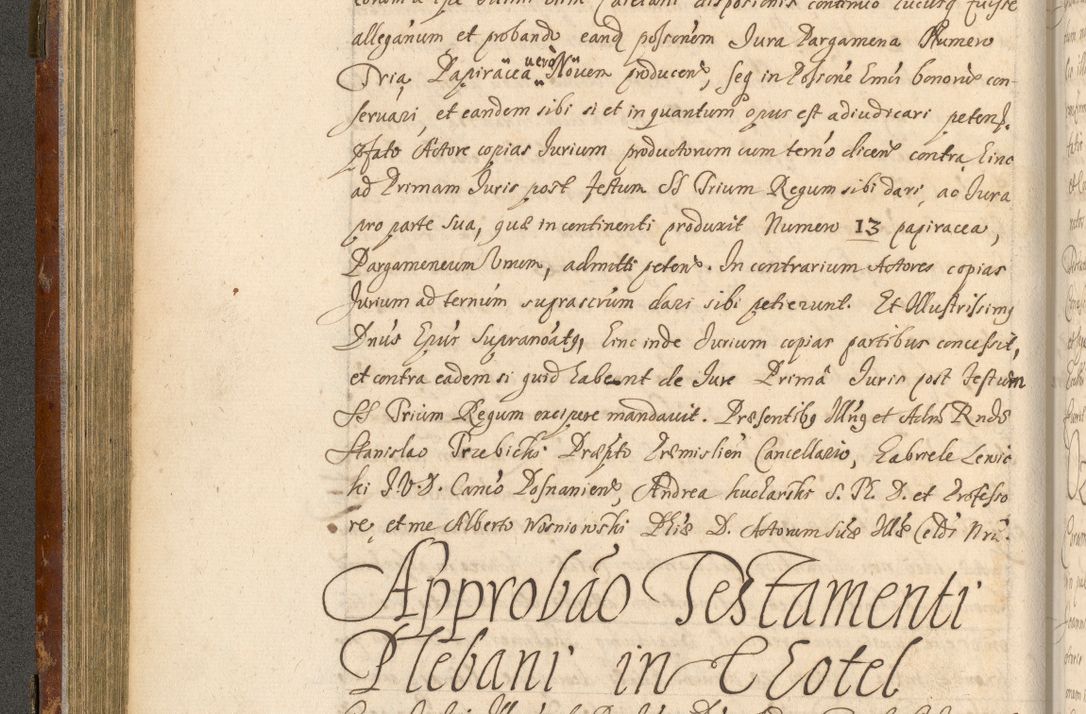 alleganum et probando eand possonem Jura Pargamena Numero
Tria, Papiracea vero Novem producens, seq in Possone Emti bonorio con-
servari, et eandem sibi si et in quantum opus est adiudicari petens.
Pfato Actore copias Jurium productorum cum termo dicens contra hinc
ad Primam Juris post festum SS Trium Regum sibi dari, ac Jura
pro parte sua, quæ in continenti produxit Numero 13 papiracea,
Pargameneum Unum, admitti petens. In contrarium Actores copias
Jurium ad ternum suprascrum dari sibi petierunt. Et Illustrissimg
Dnus Epus Supranoatg, hinc inde Jurium copias partibus concessit,
et contra eadem si quid habeant de Jure Prima Juris post festum
SS Trium Regum excipere mandavit. Præsentibg Illng et Adm Rndo
Stanislao Trzebicki Præpto Præmislien Cancellario, Gabriele Lewic
ki J.V.D. Canco Posnaniens, Andrea Kucharski S. Th. D. et Professo
re, et me Alberto Wosniowski Phiæ D. Actorum suæ Illæ Celdi Nrio.
Approbao Testamenti
Plebani in Chotel